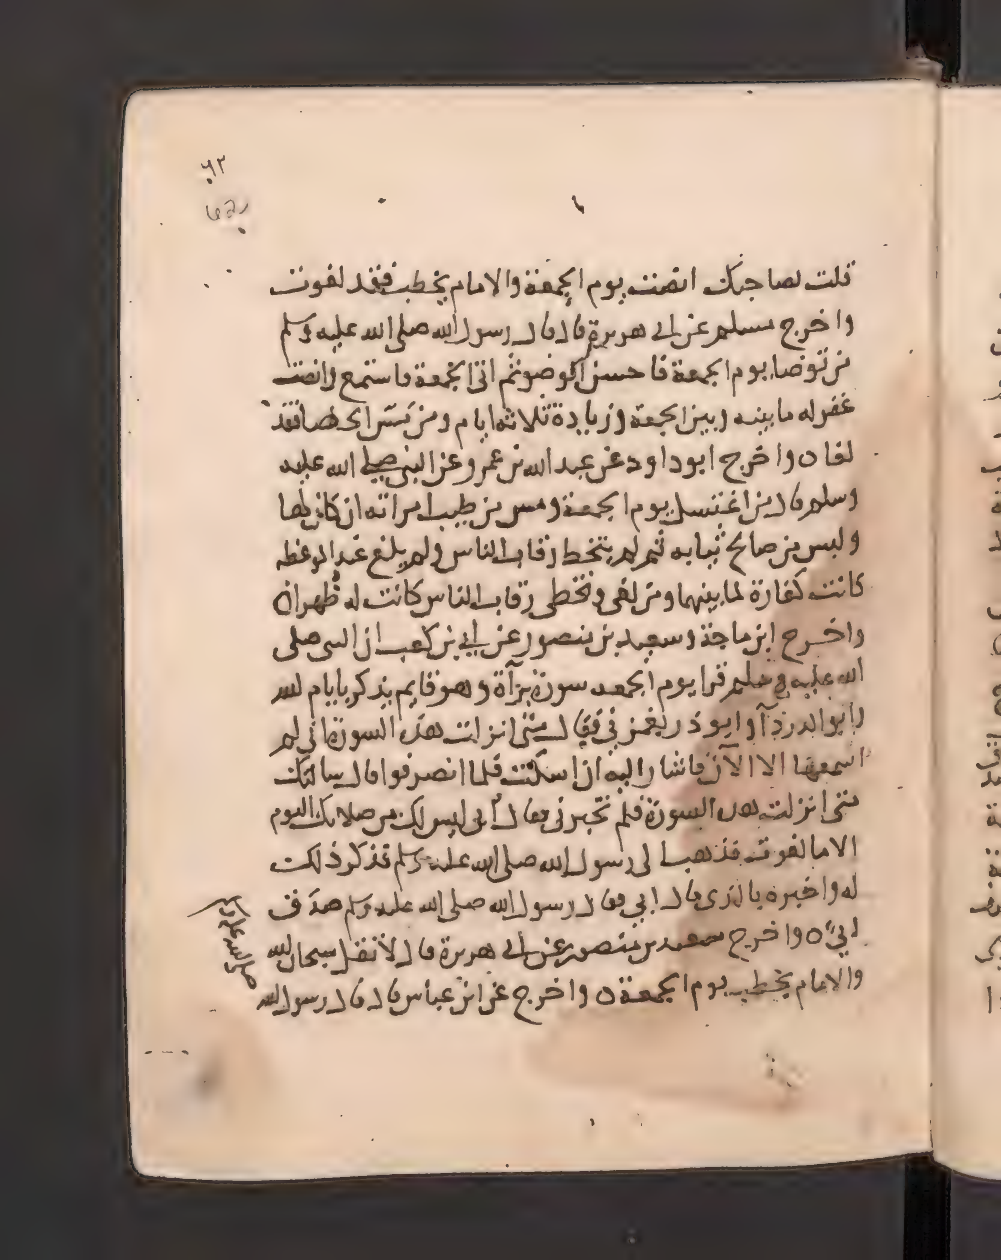 ٩٢
قلت لصاحبك انصت يوم الجمعة والامام يخطب فقد لغوت
واخرج مسلم عن ابي هريرة قال قال رسول الله صلى الله عليه وسلم
من توضا يوم الجمعة فاحسن الوضو ثم اتى الجمعة فاستمع وانصت
غفر له ما بينه وبين الجمعة وزيادة ثلاثة ايام ومن مس الحصا فقد
لغا ٥ واخرج ابو داود عن عبد الله بن عمرو عن النبي صلى الله عليه
وسلم قال من اغتسل يوم الجمعة ومس من طيب امراته ان كان لها
ولبس من صالح ثيابه ثم لم يتخط رقاب الناس ولم يلغ عند الموعظه
كانت كفارة لما بينهما ومن لغى وتخطى رقاب الناس كانت له ظهرا ٥
واخرج ابن ماجة وسعيد بن منصور عن ابي بن كعب ان النبي صلى
الله عليه وسلم قرا يوم الجمعه سورة برآة وهو قايم يذكر بايام الله
وابو الدردآ وابو ذر يغمزني فقال متى انزلت هذه السورة اني لم
اسمعها الا الآن فاشار اليه ان اسكت فلما انصرفوا قال سالتك
متى انزلت هذه السورة فلم تخبرني فقال ابي ليس لك من صلاتك اليوم
الا ما لغوت فذهب الى رسول الله صلى الله عليه وسلم فذكر ذلك
له واخبره بالذي قال ابي فقال رسول الله صلى الله عليه وسلم صدق
ابي ٥ واخرج سعيد بن منصور عن ابي هريرة قال لا تقل سبحان الله
والامام يخطب يوم الجمعة ٥ واخرج عن ابن عباس قال قال رسول الله
صلى الله عليه وسلم